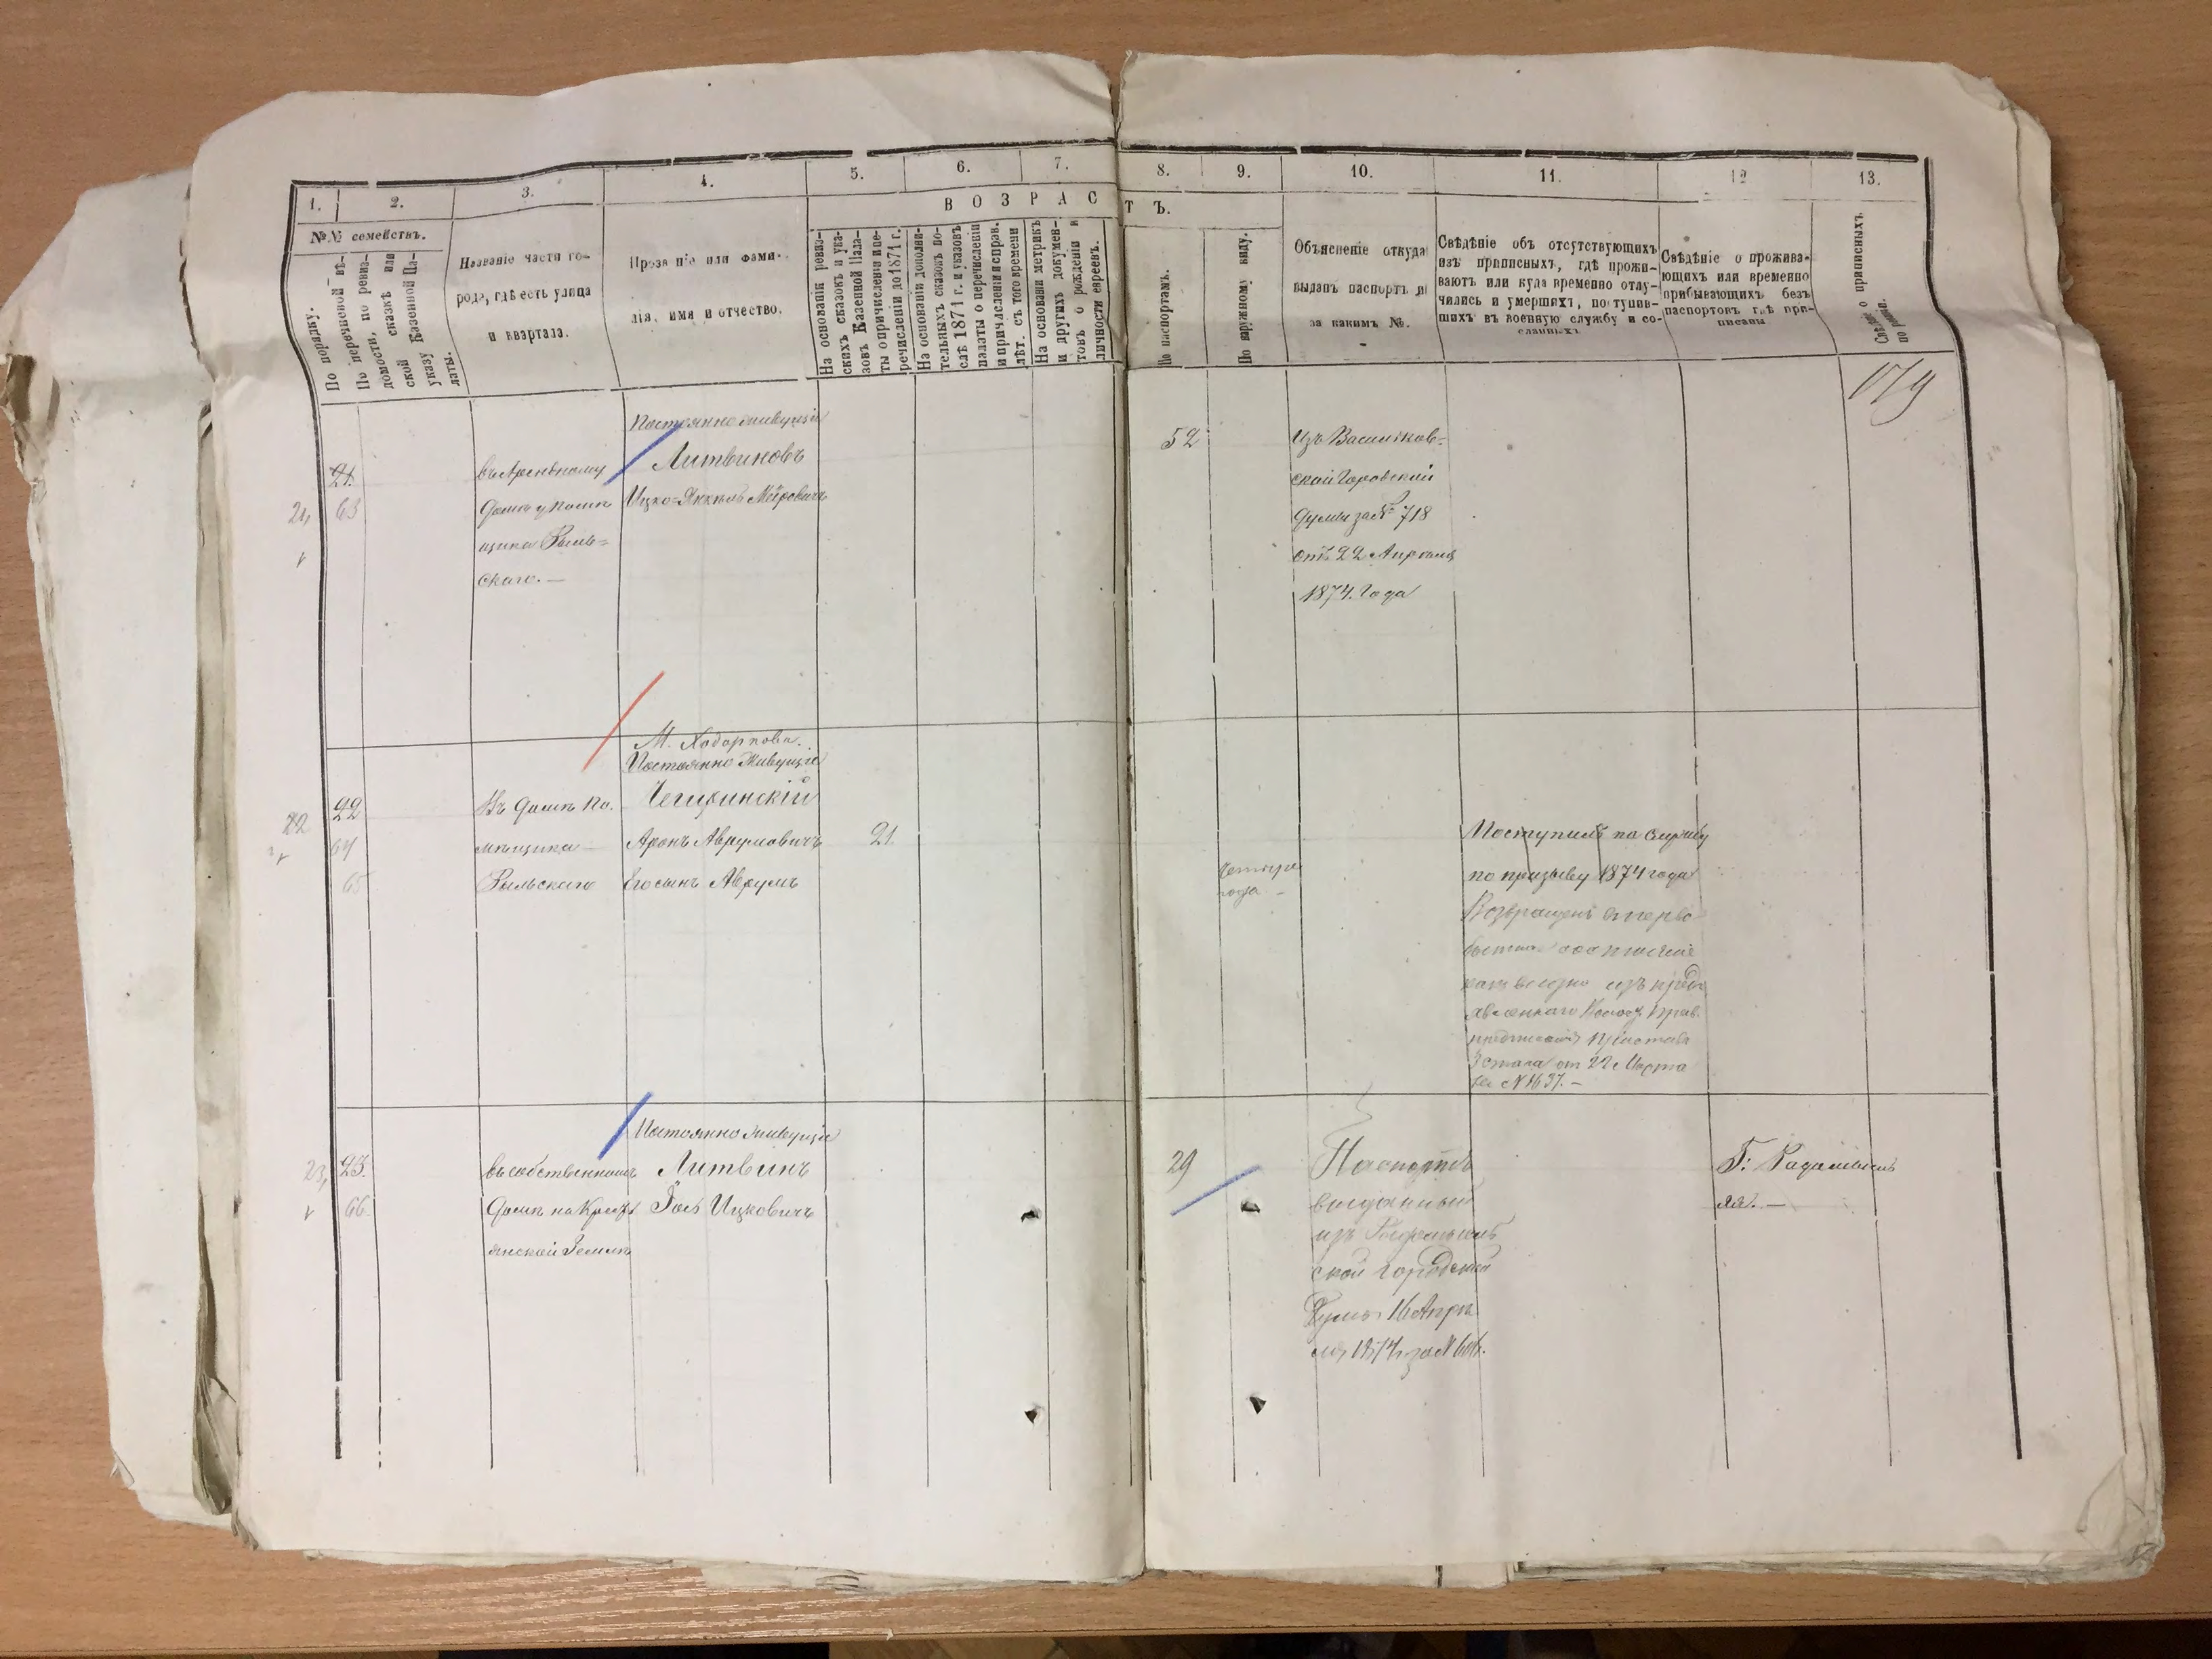 1.
2.
3.
4.
5.
6.
7.
8.
9.
10.
11.
12
13.
ВОЗРАС
ТЪ.
№№ семействъ.
По порядку.
По перечневой вѣ-
домости, по ревиз-
ской сказкѣ или
указу Казенной Па-
латы.
Названіе части го-
рода, гдѣ есть улица
и квартала.
Прозваніе или фами-
лія, имя и отчество.
На основаніи ревиз-
скихъ сказокъ и ука-
зовъ Казенной Пала-
ты о причисленіи и пе-
речисленіи до 1871 г.
На основаніи дополни-
тельныхъ сказокъ по-
слѣ 1871 г. и указовъ
палаты о перечисленіи
и причисленіи и справ.
лѣт. съ того времени
На основаніи метрикъ
и другихъ докумен-
товъ о рожденіи и
личности евреевъ.
По паспортамъ.
По наружному виду.
Объясненіе откуда
выданъ паспортъ и
за какимъ №.
Свѣдѣніе объ отсутствующихъ
изъ приписныхъ, гдѣ прожи-
ваютъ или куда временно отлу-
чились и умершихъ, поступив-
шихъ въ военную службу и со-
сланныхъ.
Свѣдѣніе о прожива-
ющихъ или временно
прибывающихъ безъ
паспортовъ гдѣ при-
писаны
Свѣд. о приписныхъ
179
Постоянно живущіе
21.
21,
63
Литвиновъ
Ицко-Янкель Мейровичъ
52
Изъ Васильков-
ской Городской
Думы за № 718
отъ 22 Апреля
1874. Года
М. Ходоркова.
Постоянно Живущіе
22
22
64
65
Въ доме По.
мещика
Рыльского
Чегиринскій
Аронъ Аврумовичъ
Его сынъ Аврумъ
21.
четыре
года -
Поступилъ на службу
по призыву 1874 года
Возвращенъ въ перво
как видно изъ пред
явленнаго
Пристава
3 стана от 22 Марта
за №
Постоянно живущіе
23,
23.
66.
въ собственномъ
доме на Кресть
янской Земле
Литвинъ
Ицковичъ
29
Паспортъ
выданный
изъ Радомысль
ской городской
Думы 16 Апре
ля 1874 за №
Г. Радомысль